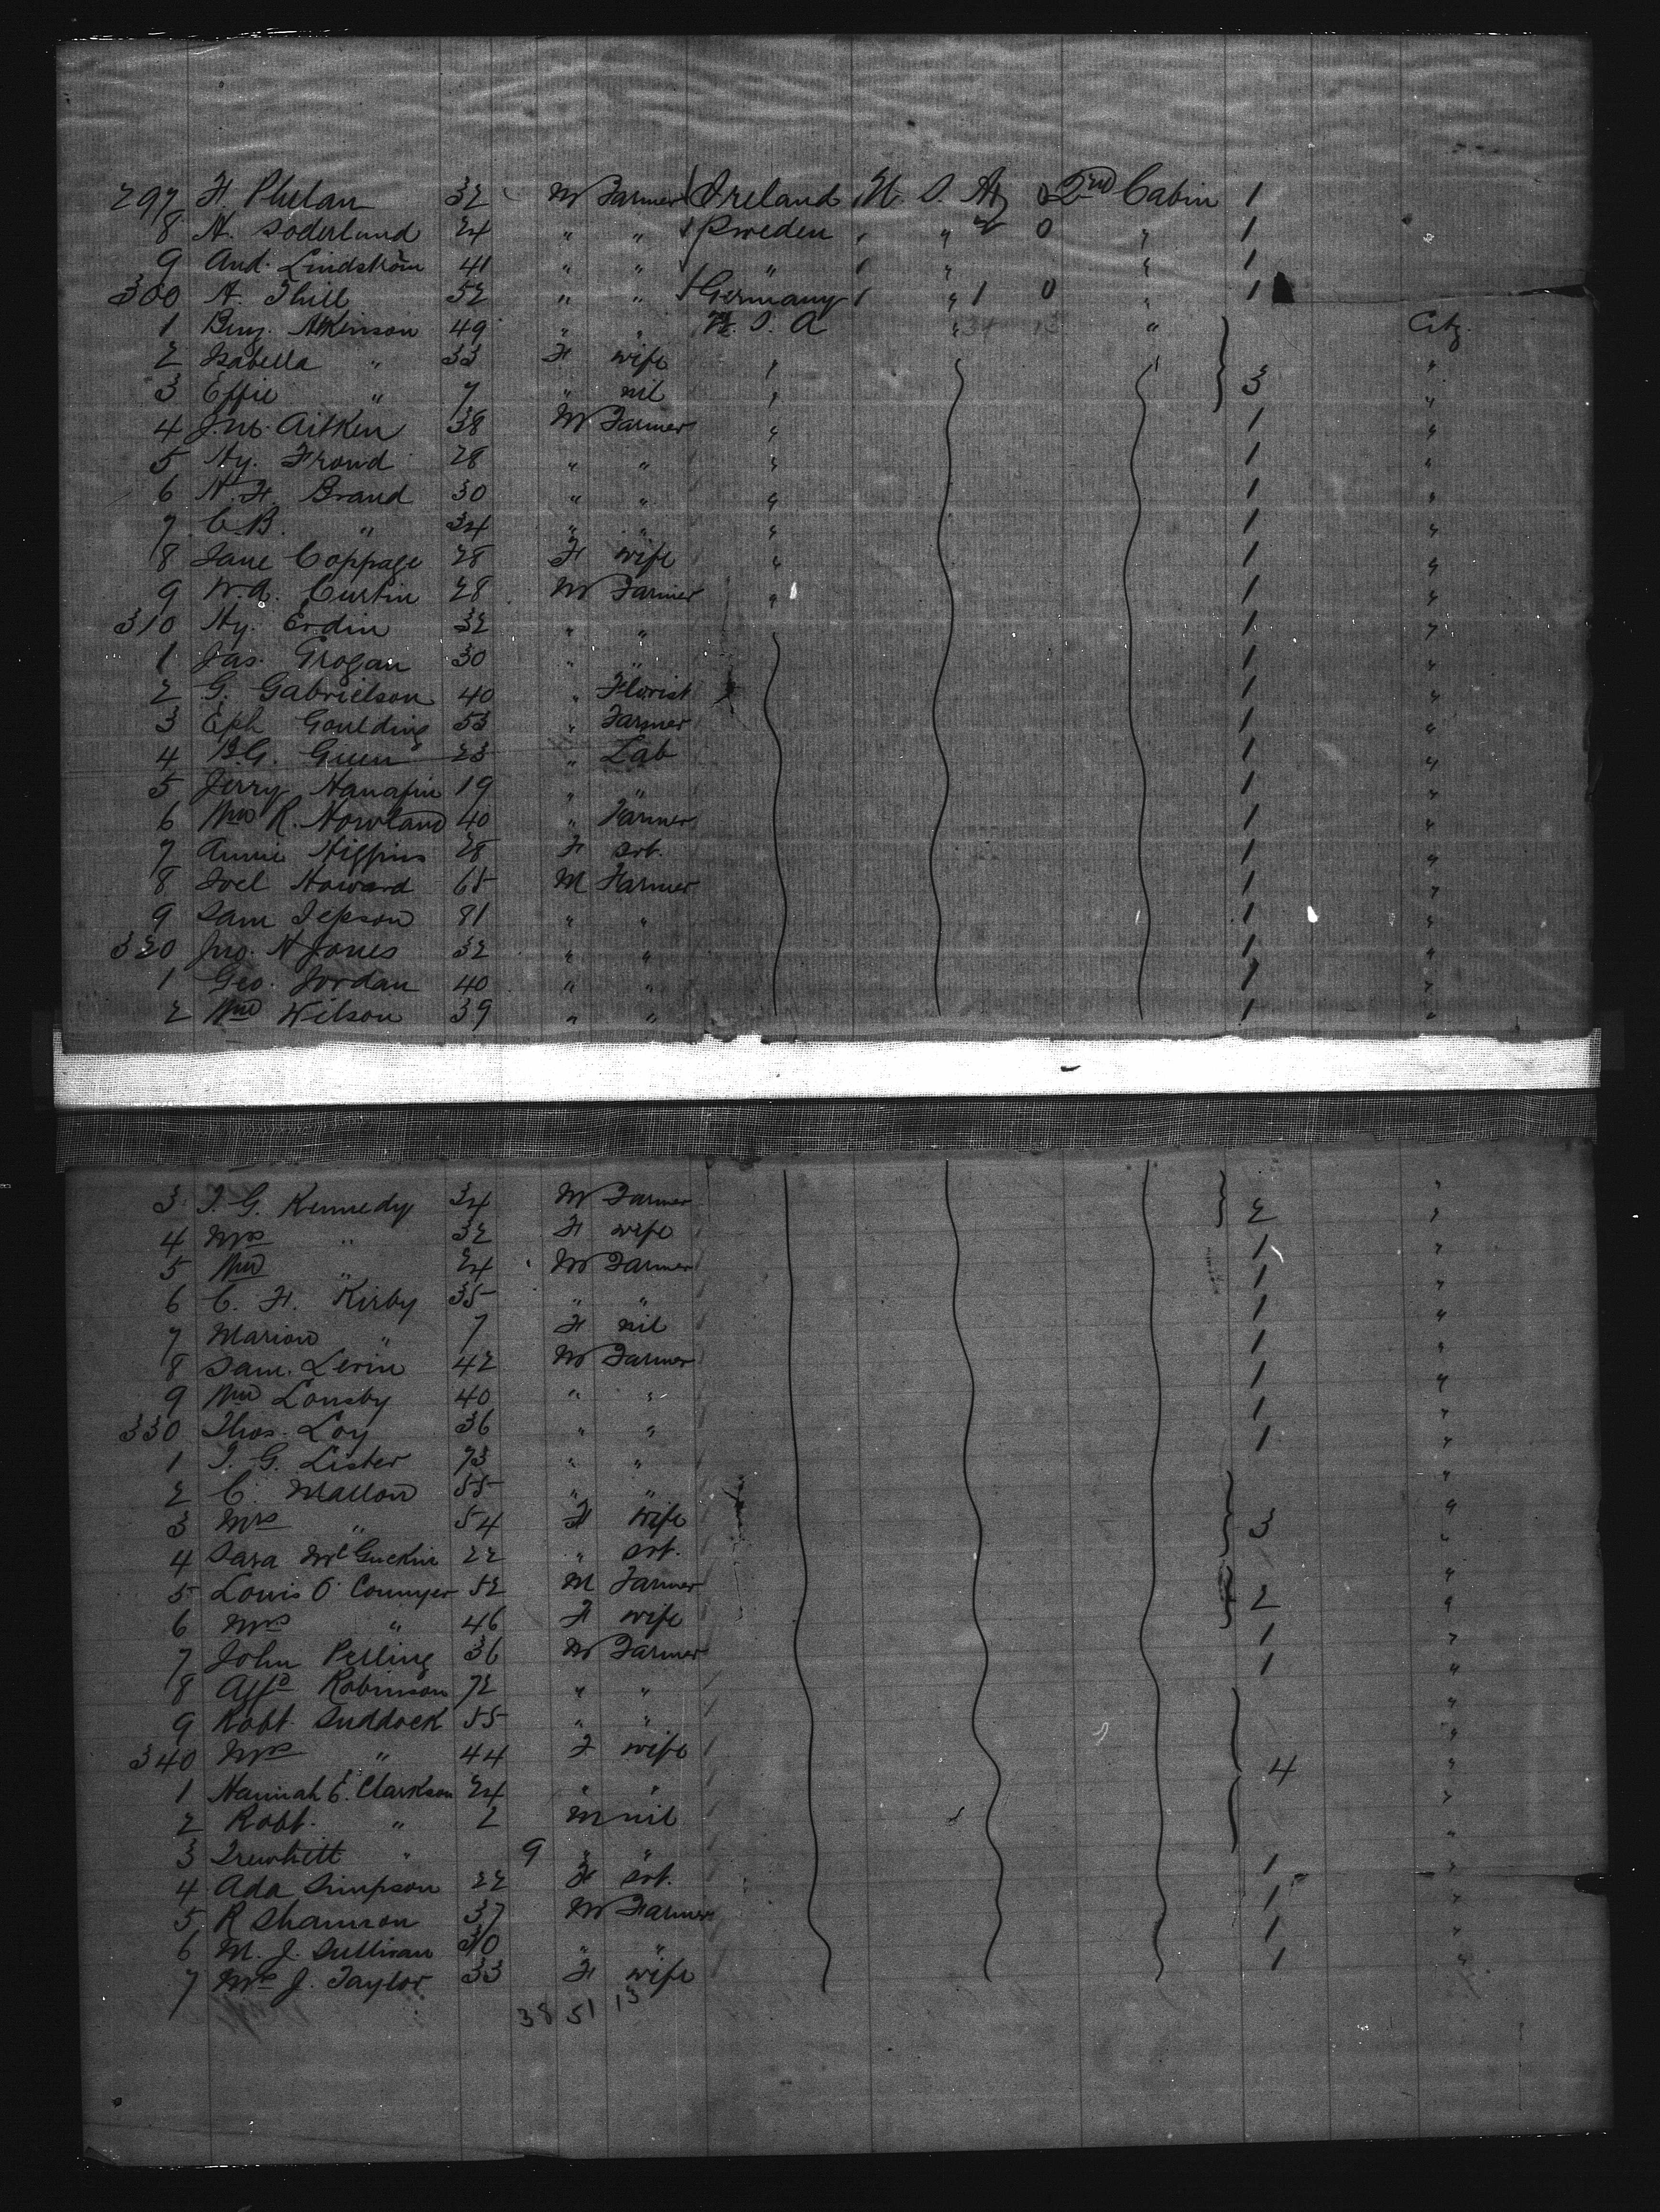 297 H. Phelan 32 M Farmer Ireland U. S. A 2nd Cabin 1
8 A. Soderlund 24 " " Sweden " 2 0 " 1
9 And. Lindström 41 " " " " " 1
300 A. Thill 52 " " Germany " 1 0 " 1
1 Benj. Atkinson 49 " " U. S. A " 34 13 " Citz.
2 Isabella " 33 F wife " "
3 Effie " 7 " nil " 3 "
4 Jno. Aitken 38 M Farmer " 1 "
5 Hy. Frond 28 " " " 1 "
6 N. H. Brand 30 " " " 1 "
7 C. B. " 34 " " " 1 "
8 Jane Coppage 28 F wife " 1 "
9 W. A. Curtin 28 M Farmer " 1 "
310 Hy. Erdin 32 " " 1 "
1 Jas. Grogan 30 " " 1 "
2 G. Gabrielson 40 " Florist 1 "
3 Eph Goulding 53 " Farmer 1 "
4 B. G. Green 23 " Lab 1 "
5 Jerry Hanafin 19 " " 1 "
6 Wm R. Howland 40 " Farmer 1 "
7 Annie Higgins 28 F srt. 1 "
8 Joel Howard 65 M Farmer 1 "
9 Sam Jepson 81 " " 1 "
320 Jno. H Jones 32 " " 1 "
1 Geo. Jordan 40 " " 1 "
2 Wm Wilson 39 " " 1 "
3 J. G. Kennedy 34 M Farmer "
4 Mrs " 32 F wife 2 "
5 Wm " 24 M Farmer 1 "
6 C. H. Kirby 35 " " 1 "
7 Marion " 7 F nil 1 "
8 Sam. Levin 42 M Farmer 1 "
9 Wm Lonsby 40 " " 1 "
330 Thos. Loy 36 " " 1 "
1 J. G. Lister 73 " " 1 "
2 C. Mallon 55 " " "
3 Mrs " 54 F wife 3 "
4 Sara McGuckin 22 " srt. "
5 Louis O'Connyer 52 M Farmer 2 "
6 Mrs " 46 F wife "
7 John Perling 36 M Farmer 1 "
8 Alfd Robinson 72 " " 1 "
9 Robt. Suddock 55 " " "
340 Mrs " 44 F wife "
1 Hannah E. Clarkson 24 " " 4 "
2 Robt. " 2 M nil "
3 Trewhitt " 9 " " "
4 Ada Simpson 22 F srt. 1 "
5 R Shannon 37 M Farmer 1 "
6 M. J. Sullivan 30 " " 1 "
7 Mrs J. Taylor 33 F wife 1 "
38 51 13